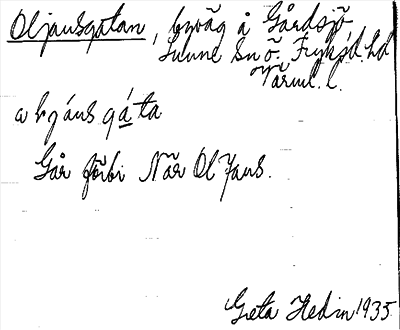 Oljansgatan, byväg å Gårdsjö,
Sunne sn ö. Fryksd. hd
Värml. l.
gáta
Går förbi När Ol Jans.
Greta Hedin 1935